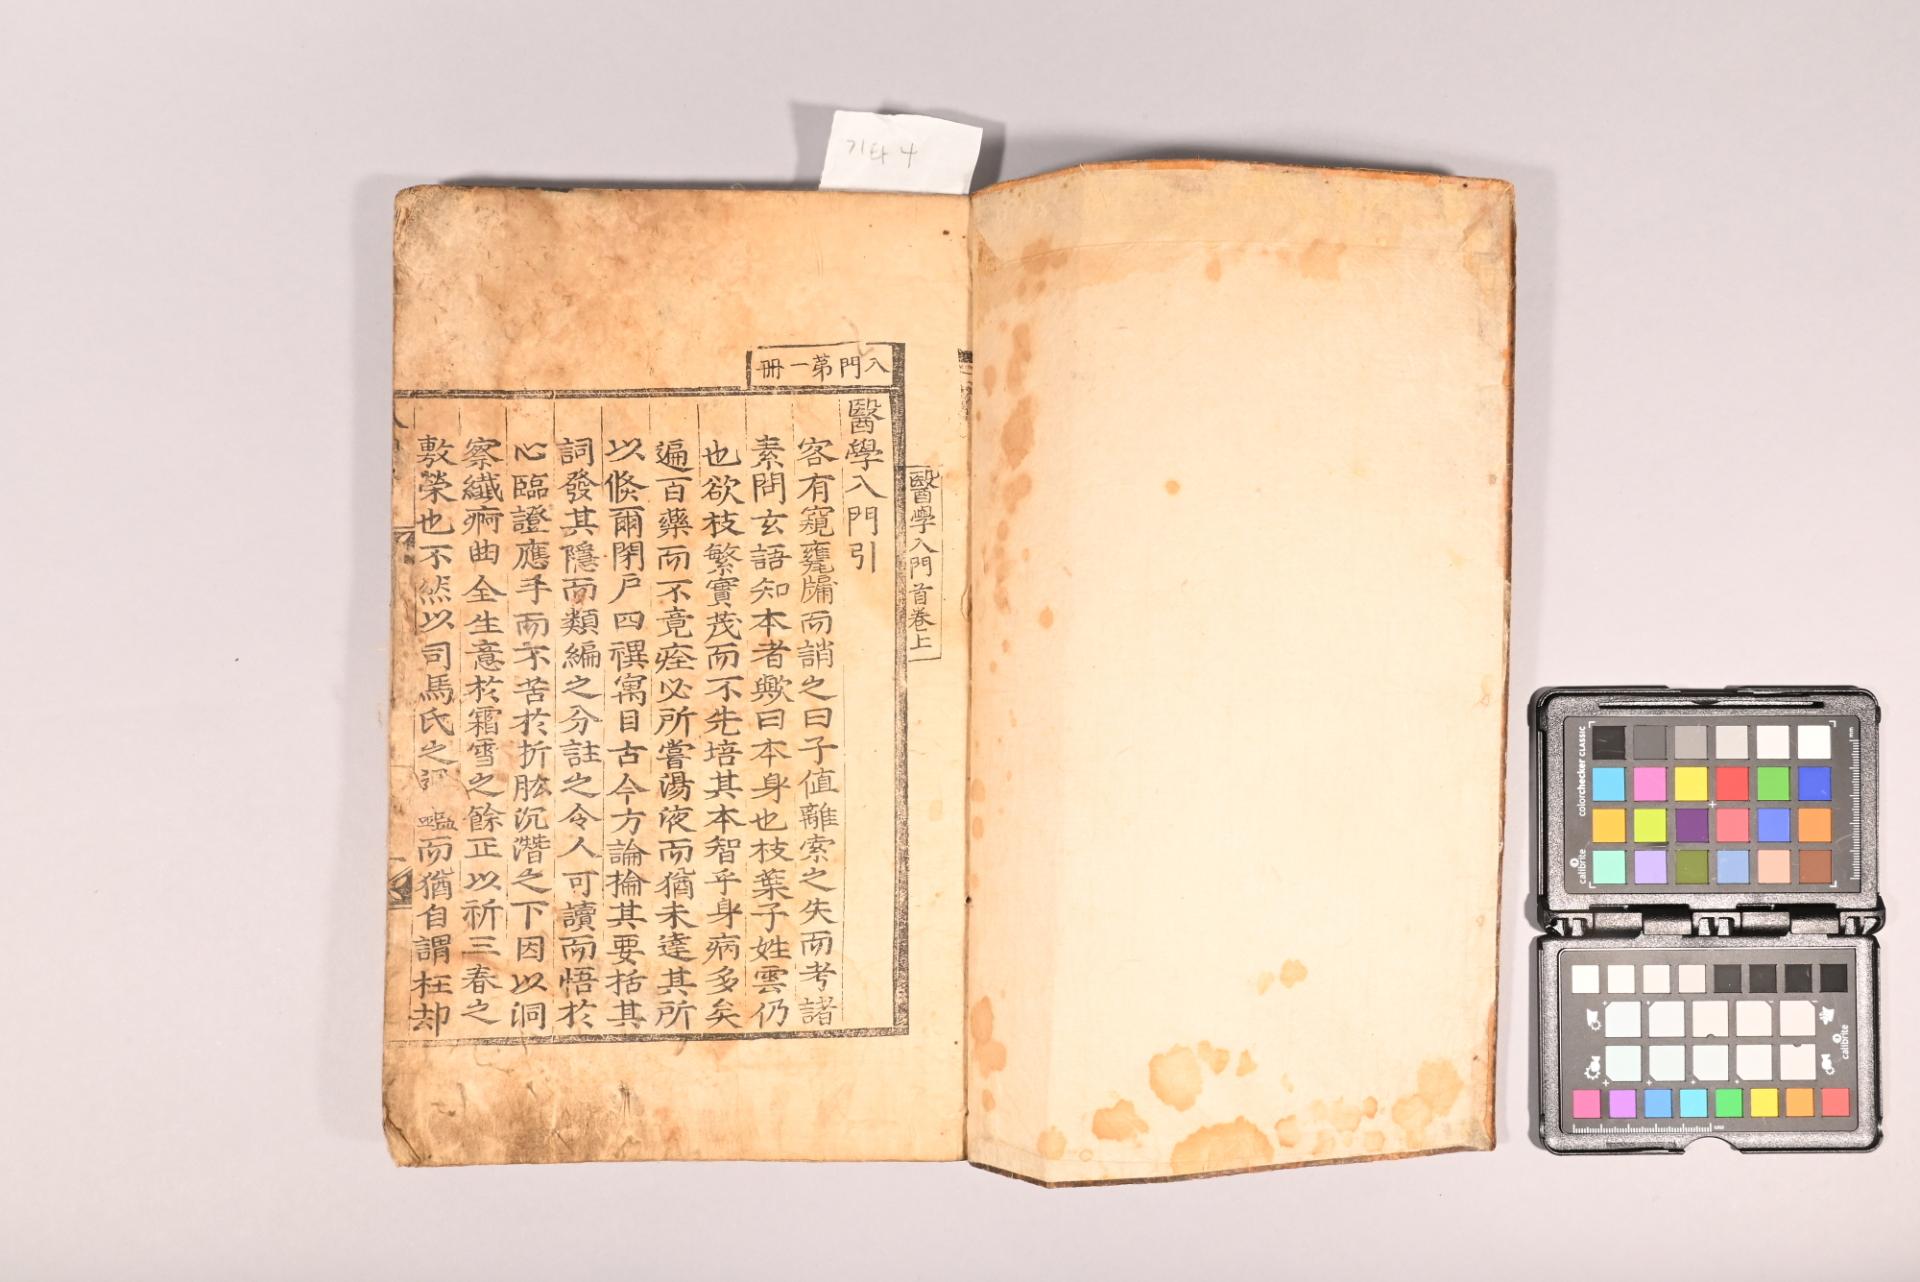 기타 4
入門第一冊
醫學入門首卷上
醫學入門引
客有窺甕牖而誚之曰子值離索之失而考諸
素問玄語知本者歟曰本身也枝葉子姓雲仍
也欲枝繁實茂而不先培其本智乎身病多矣
遍百藥而不竟痊必所嘗湯液而猶未達其所
以倏爾閉戶四禩寓目古今方論掄其要括其
詞發其隱而類編之分註之令人可讀而悟於
心臨證應手而不苦於折肱沉潛之下因以洞
察纖痾曲全生意於霜雪之餘正以祈三春之
敷榮也不然以司馬氏之 鑑而猶自謂枉却
colorchecker CLASSIC
calibrite
calibrite